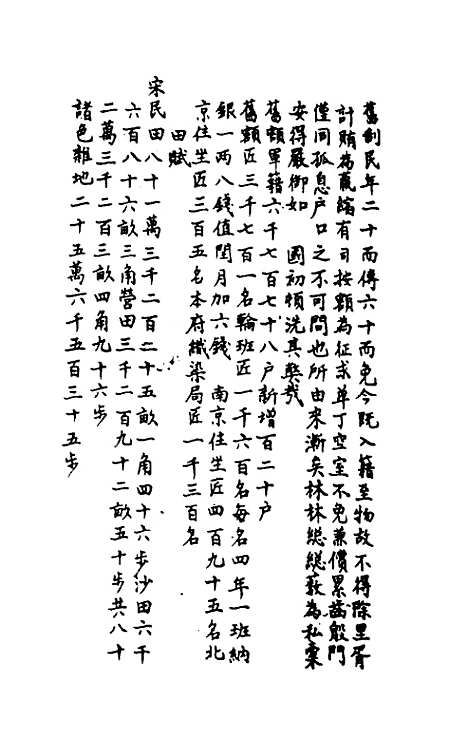 舊制民年二十而傅六十而免今既入籍至物故不得除里胥
計賄為贏縮有司按額為征求單丁空室不免兼償累齒殷門
僅同孤息户口之不可問也所由來漸矣林林緫緫蔽為私橐
安得嚴御如 國初頓洗其弊哉
舊額軍籍六千七百七十八户新增百二十户
舊額匠三千七百一名輪班匠一千六百名每名四年一班納
銀一两八錢值閏月加六錢 南京住坐匠四百九十五名北
京住坐匠三百五名本府織染局匠一千三百名
田賦
宋民田八十一萬三千二百二十五畝一角四十六步沙田六千
六百八十六畝三角營田三千二百九十二畝五十步共八十
二萬三千二百三畝四角九十六步
諸色雜地二十五萬六千五百三十五步